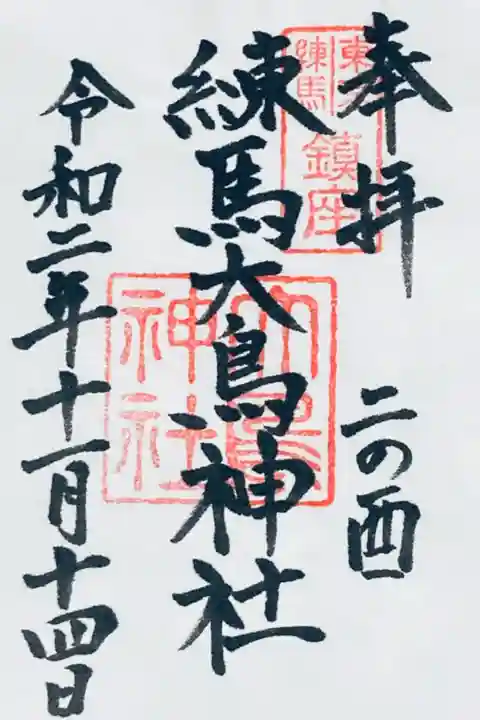 奉拝
二の酉
東京
練馬
鎮座
練馬大鳥神社
大鳥
神社
令和二年十一月十四日